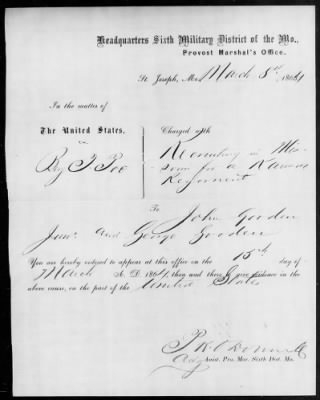 Headquarters Sixth Military District of the Mo.,
Provost Marshal's Office.
St. Joseph, Mo., March 8th 1864
In the matter of
The United States. Charged with
vs Recruiting in Mis-
Benj F Poe souri for a Kansas
Regiment
To John Gooden
Junr and George Gooden
You are hereby notified to appear at this office on the 15th day of
March A. D. 1864, then and there to give evidence in the
above cause, on the part of the United States
Asst. Pro. Mar. Sixth Dist. Mo.